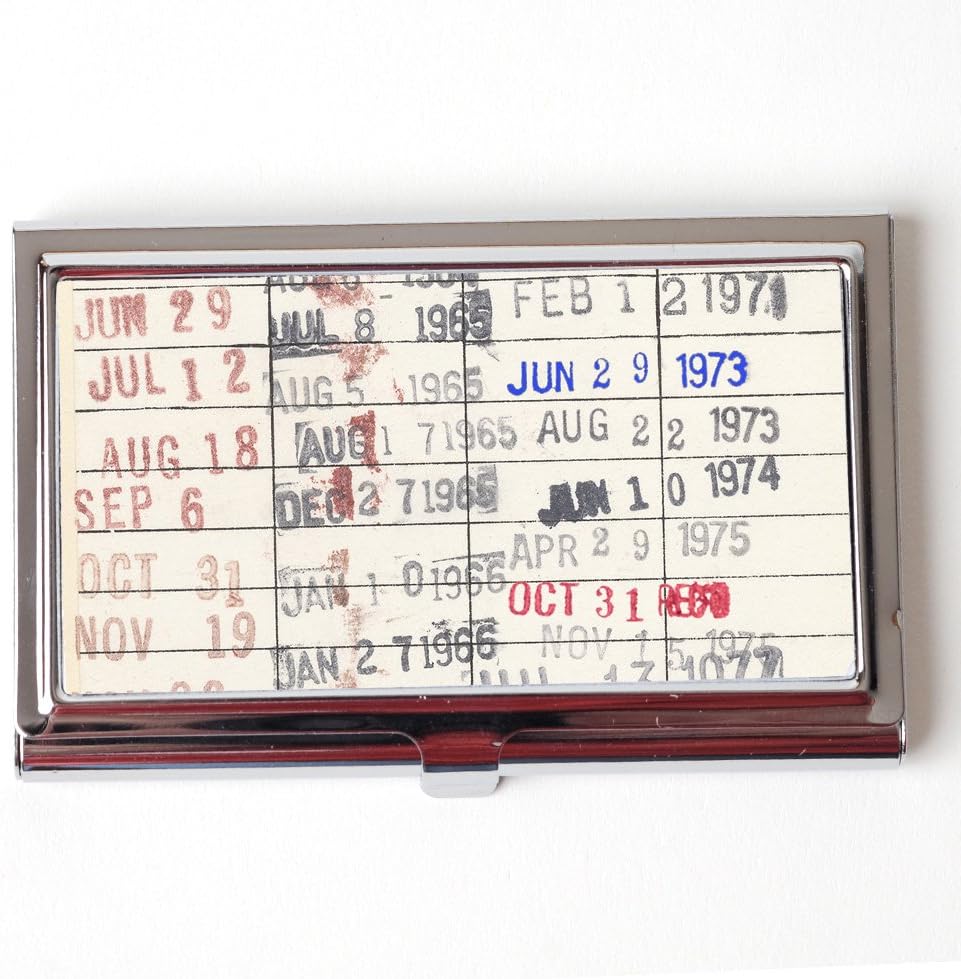 JUN 29
JUL 12
AUG 18
SEP 6
OCT 31
NOV 19
AUG
JUL 8 1965
AUG 5 1965
AUG 1 7 1965
DEC 2 7 1965
JAN 1 0 1966
JAN 2 7 1966
FEB 1 2 1971
JUN 2 9 1973
AUG 2 2 1973
JUN 1 0 1974
APR 2 9 1975
OCT 31
NOV 1 5 1975
1977